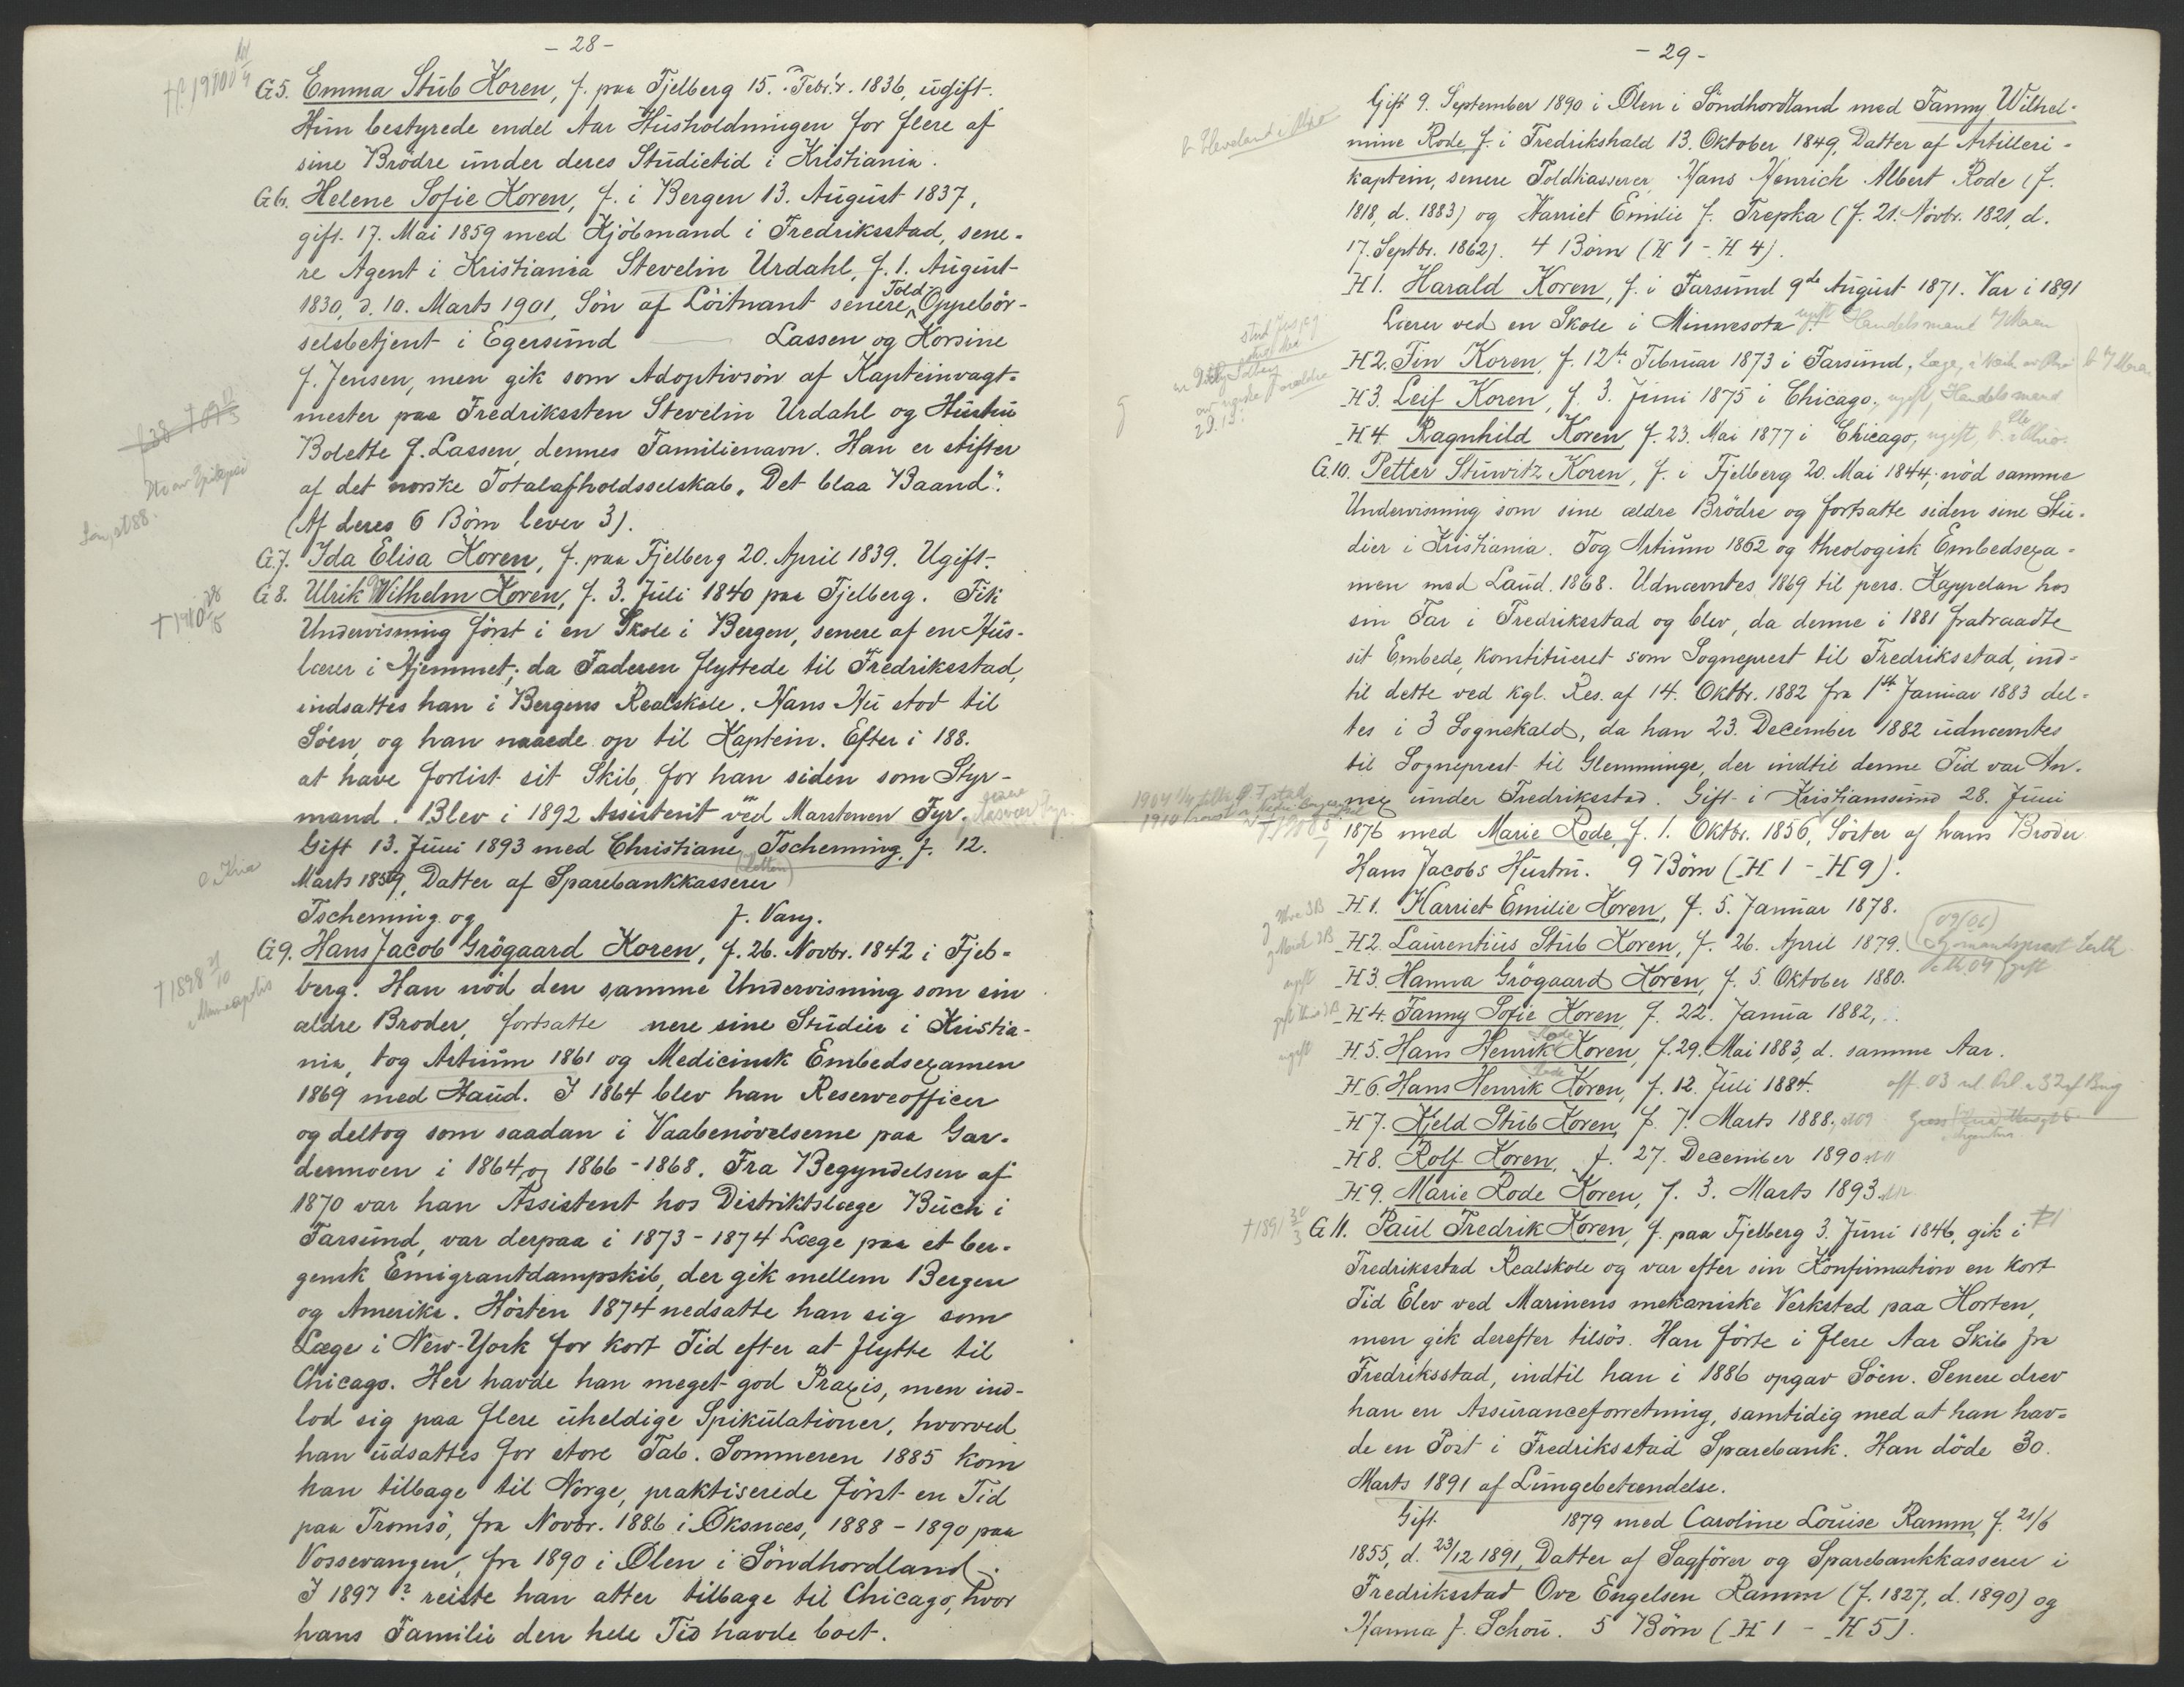 - 28 -
G5. Emma Stub Koren, f. paa Fjelberg 15. Febr. 1836, ugift.
Hun bestyrede endel Aar Husholdningen for flere af
sine Brödre under deres Studietid i Kristiania.
G6. Helene Sofie Koren, f. i Bergen 13. August 1837,
gift. 17. Mai 1859 med Kjöbmand i Fredriksstad, sene-
re Agent i Kristiania Stevelin Urdahl, f. 1. August
1830, d. 10. Marts 1901, Sön af Löitnant senere Told- Oppebör-
selsbetjent i Egersund Lassen og Korsine
f. Jensen, men gik som Adoptivsön af Kapteinvagt-
mester paa Fredrikssten Stevelin Urdahl og Hustru
Bolette f. Lassen, dennes Familienavn. Han er stifter
af det norske Totalafholdsselskab "Det blaa Baand".
(Af deres 6 Börn lever 3).
G.7. Ida Elisa Koren, f. paa Fjelberg 20. April 1839. Ugift.
† 1910 28/5
G 8. Ulrik Wilhelm Koren, f. 3. Juli 1840 paa Fjelberg. Fik
Undervisning först i en Skole i Bergen, senere af en Hus-
lærer i Hjemmet; da Faderen flyttede til Fredriksstad,
indsattes han i Bergens Realskole. Hans Hu stod til
Söen, og han naaede op til Kaptein. Efter i 188.
at have forlist sit Skib, for han siden som Styr-
mand. Blev i 1892 Assistent ved Marstenen Fyr.
Gift 13. Juni 1893 med Christiane Tscherning, f. 12.
Marts 1859, Datter af Sparebankkasserer
Tscherning og f. Vang.
† 1898 i Minneapolis
G9. Hans Jacob Grögaard Koren, f. 26. Novbr. 1842 i Fjel-
berg. Han nöd den samme Undervisning som sin
ældre Broder, fortsatte nere sine Studier i Kristia-
nia, tog Artium 1861 og Medicinsk Embedsexamen
1869 med Haud. I 1864 blev han Reserveofficer
og deltog som saadan i Vaabenövelserne paa Gar-
dermoen i 1864 og 1866 - 1868. Fra Begyndelsen af
1870 var han Assistent hos Distriktslæge Buch i
Farsund, var derpaa i 1873 - 1874 Læge paa et ber-
gensk Emigrantdampskib, der gik mellem Bergen
og Amerika. Hösten 1874 nedsatte han sig som
Læge i New-York for kort Tid efter at flytte til
Chicago. Her havde han meget god Praxis, men ind-
lod sig paa flere uheldige Spikulationer, hvorved
han udsattes for store Tab. Sommeren 1885 kom
han tilbage til Norge, praktiserede först en Tid
paa Tromsö, fra Novbr. 1886 i Øksnæs, 1888 - 1890 paa
Vossevangen, fra 1890 i Ølen i Söndhordland.
I 1897? reiste han atter tilbage til Chicago, hvor
hans Familie den hele Tid havde boet.
- 29 -
Gift 9. September 1890 i Ølen i Söndhordland med Fanny Wilhel-
mine Rode f. i Fredrikshald 13. Oktober 1849, Datter af Artilleri-
kaptein, senere Toldkasserer, Hans Henrich Albert Rode (f.
1818, d. 1883) og Harriet Emilie f. Trepka (f. 21. Novbr. 1821, d.
17. Septbr. 1862). 4 Börn (H 1 - H 4).
H 1. Harald Koren, f. i Farsund 9de August 1871. Var i 1891
Lærer ved en Skole i Minnesota ugift Handelsmand
H 2. Fin Koren, f. 12te Februar 1873 i Farsund, Læge,
H 3. Leif Koren, f. 3. Juni 1875 i Chicago, ugift, Handelsmand
H 4. Ragnhild Koren, f. 23. Mai 1877 i Chicago, ugift,
G.10. Petter Stuwitz Koren, f. i Fjelberg 20. Mai 1844; nöd samme
Undervisning som sine ældre Brödre og fortsatte siden sine Stu-
dier i Kristiania. Tog Artium 1862 og theologisk Embedsexa-
men med Laud. 1868. Udnævntes 1869 til pers. Kappelan hos
sin Far i Fredriksstad og blev, da denne i 1881 fratraadte
sit Embede, konstitueret som Sogneprest til Fredriksstad, ind-
til dette ved kgl. Res. af 14. Oktbr. 1882 fra 1ste Januar 1883 del-
tes i 3 Sognekald, da han 23. December 1882 udnævntes
til Sogneprest til Glemminge, der indtil denne Tid var An-
nex under Fredriksstad. Gift i Kristianssund 28. Juni
1876 med Marie Rode, f. 1. Oktbr. 1856, Söster af hans Broder
Hans Jacobs Hustru. 9 Börn (H 1 - H 9).
H 1. Harriet Emilie Koren, f. 5. Januar 1878.
H 2. Laurentius Stub Koren, f. 26. April 1879.
ugift H 3. Hanna Grögaard Koren, f. 5. Oktober 1880.
H 4. Fanny Sofie Koren, f. 22. Janua 1882,
ugift H. 5. Hans Henrik Rode Koren, f. 29. Mai 1883, d. samme Aar.
H 6. Hans Henrik Rode Koren, f. 12. Juli 1884.
H 7. Kjeld Stub Koren, f. 7. Marts 1888,
H 8. Rolf Koren, f. 27. December 1890
H 9. Marie Rode Koren, f. 3. Marts 1893
† 1891 30/3 G 11. Paul Fredrik Koren, f. paa Fjelberg 3. Juni 1846, gik i
Fredriksstad Realskole og var efter sin Konfirmation en kort
Tid Elev ved Marinens mekaniske Verksted paa Horten,
men gik derefter tilsös. Han förte i flere Aar Skib fra
Fredriksstad, indtil han i 1886 opgav Söen. Senere drev
han en Assuranceforretning, samtidig med at han hav-
de en Post i Fredriksstad Sparebank. Han döde 30.
Marts 1891 af Lungebetændelse.
Gift 1879 med Caroline Louise Ramm f. 21/6
1855, d. 23/12 1891, Datter af Sagförer og Sparebankkasserer i
Fredriksstad Ove Engelsen Ramm (f. 1827, d. 1890) og
Hanna f. Schou. 5 Börn (H 1 - H 5).